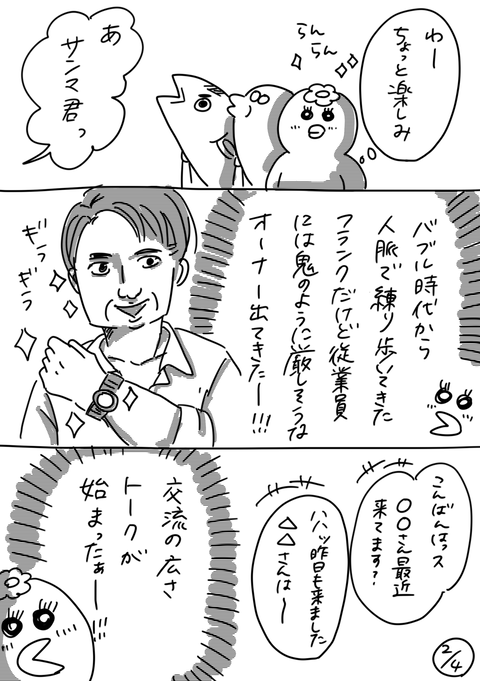 わー
ちょっと楽しみ
らん
らん
あ
サンマ君っ
バブル時代から
人脈で練り歩いてきた
フランクだけど従業員
には鬼のように厳しそうな
オーナー出てきたー!!!
ギラ
ギラ
こんばんはっス
○○さん最近
来てます?
ハハッ昨日も来ました
△△さんは〜
交流の広さ
トークが
始まったぁー!!!
2/4